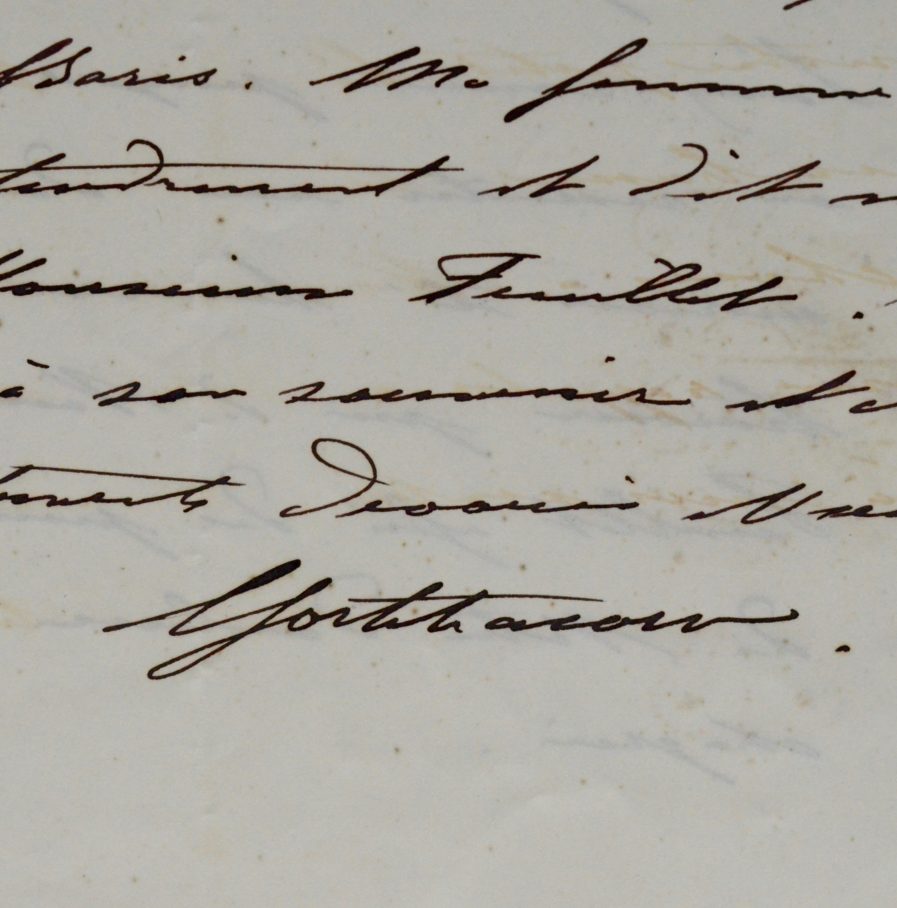 Paris. Ma femme
tendrement et dit
Monsieur Feuillet.
à son souvenir et
dévoués
Gortchacow.